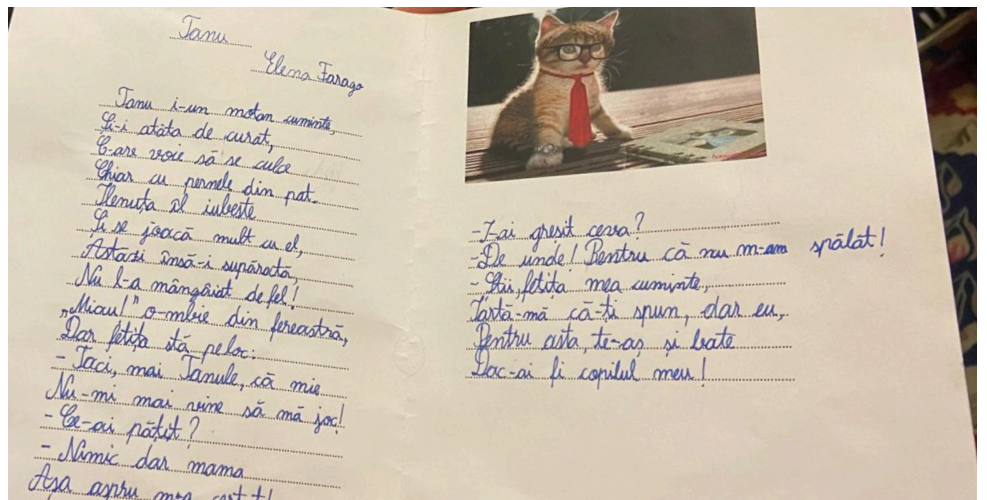 Tanu
Elena Farago
Tanu i-un motan cuminte,
Și-i atâta de curat,
C-are voie să se culce
Chiar cu pernele din pat.
Ilenuța îl iubește
Și se joacă mult cu el,
Astazi însă-i supărată,
Nu l-a mângâiat defel!
„Miau!" o-mbie din fereastră,
Dar fetița stă pe loc:
- Taci, mai Tanule, că mie
Nu-mi mai vine să mă joc!
- Ce-ai pățit?
- Nimic dar mama
Așa aspru
- I-ai gresit ceva?
- De unde! Pentru că nu m-am spălat!
- Știi, fetița mea cuminte,
Iartă-mă că-ți spun, dar eu,
Pentru asta, te-aș și bate
Dac-ai fi copilul meu!